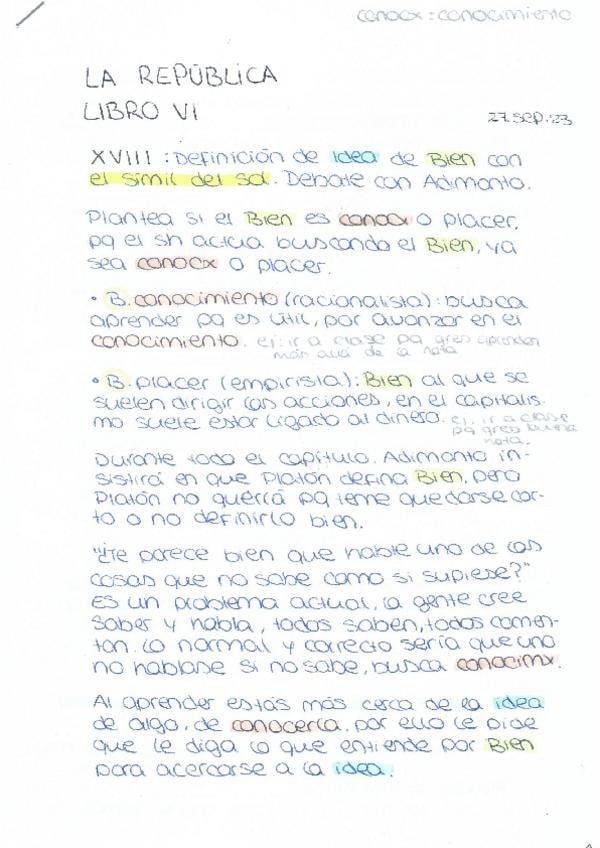 conocx : conocimiento
LA REPÚBLICA
LIBRO VI
27 sep. 23
XVIII : Definición de idea de Bien con
el símil del sol. Debate con Adimanto.
Plantea si el Bien es conocx o placer,
pq el sh actúa buscando el Bien, ya
sea conocx o placer.
• B. conocimiento (racionalista) : busca
aprender pq es útil, por avanzar en el
conocimiento. ej: ir a clase pq qres aprender
más allá de la nota
• B. placer (empirista) : Bien al que se
suelen dirigir las acciones, en el capitalis-
mo suele estar ligado al dinero. ej. ir a clase
pq qres buena
nota.
Durante todo el capítulo. Adimanto in-
sistirá en que Platón defina Bien, pero
Platón no querrá pq teme quedarse cor-
to o no definirlo bien.
"¿Te parece bien que hable uno de las
cosas que no sabe como si supiese?"
Es un problema actual, la gente cree
saber y habla, todos saben, todos comen-
tan. lo normal y correcto sería que uno
no hablase si no sabe, busca conocimx.
Al aprender estás más cerca de la idea
de algo, de conocerla. por ello le pide
que le diga lo que entiende por Bien
para acercarse a la idea.